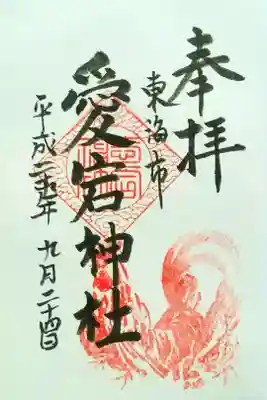 奉拝
東海市
愛宕神社
平成二十五年 九月二十四日